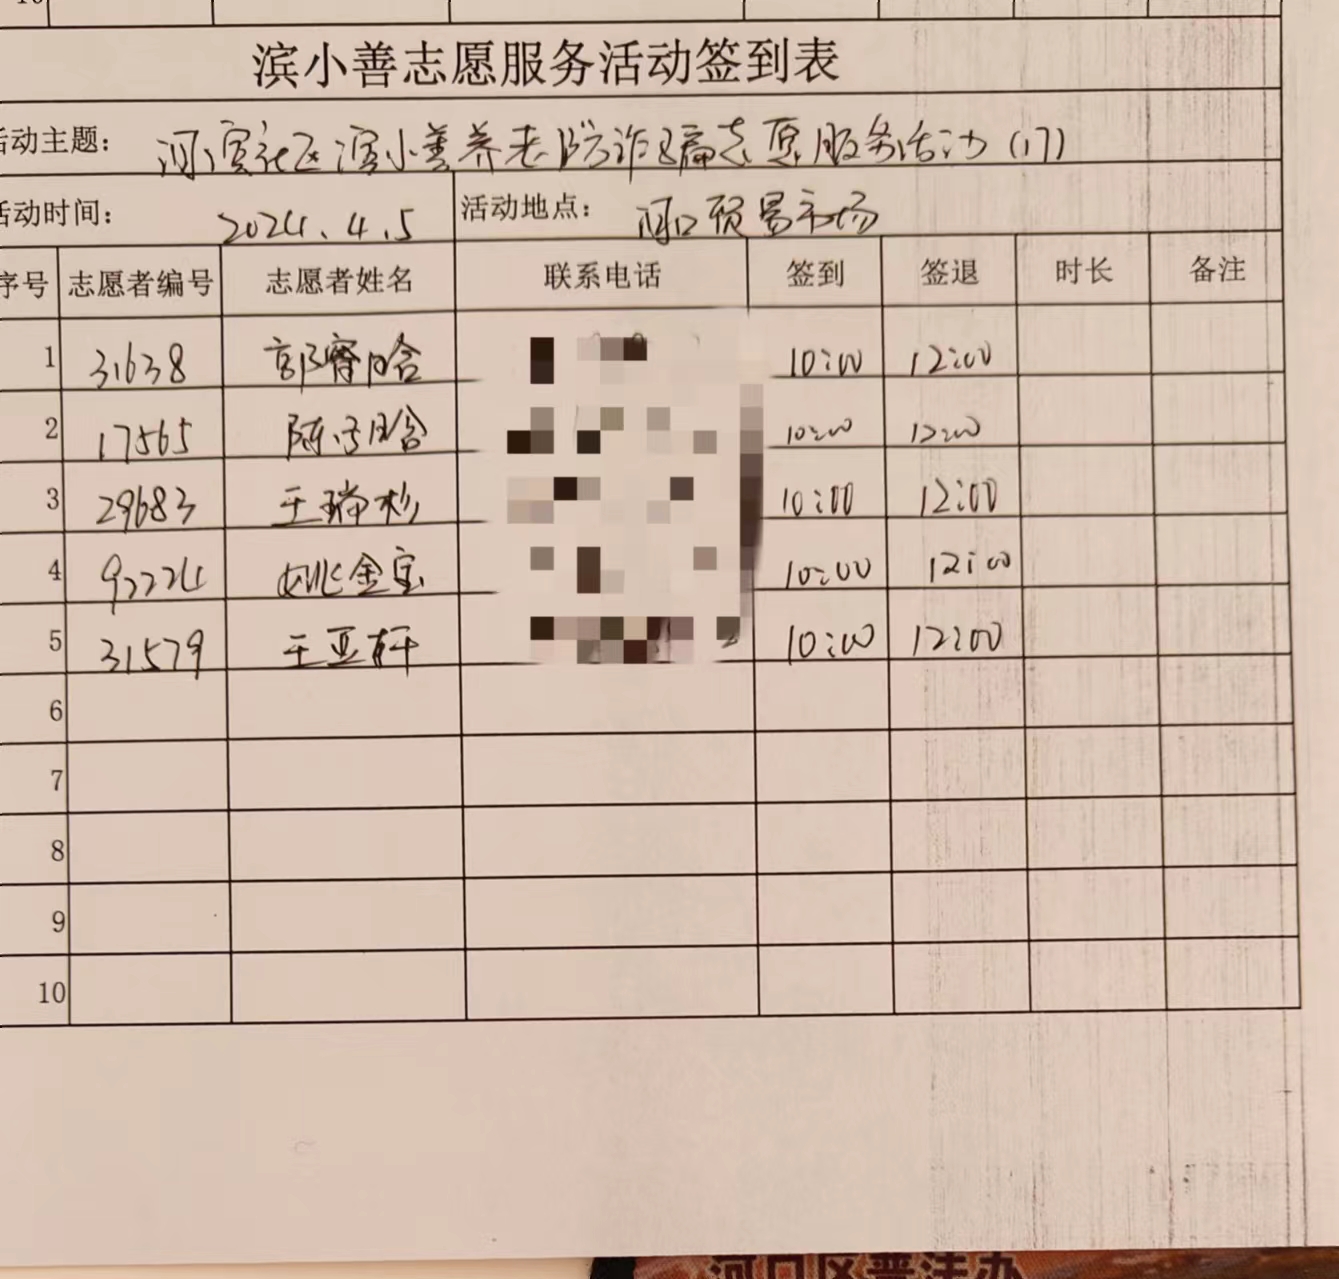 10
滨小善志愿服务活动签到表
活动主题: 河滨社区滨小善养老防诈骗志愿服务活动(17)
活动时间: 2024.4.5 活动地点: 河口贸易市场
序号 志愿者编号 志愿者姓名 联系电话 签到 签退 时长 备注
1 31638 郭 晗 10:00 12:00
2 17565 陈 晗 10:00 12:00
3 29683 王瑞杉 10:00 12:00
4 92224 姚金宝 10:00 12:00
5 31579 王亚轩 10:00 12:00
6
7
8
9
10
河口区普法办